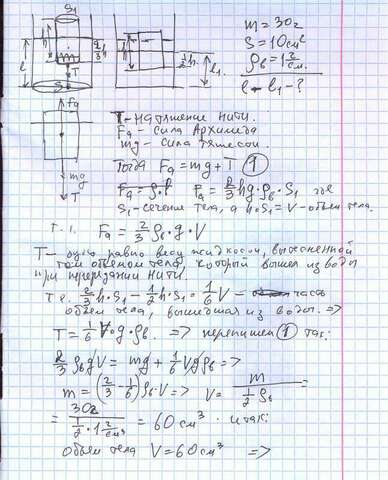 S₁
h
2/3 h
l
T
S
h
1/2 h
l₁
m = 30г
S = 10 см²
ρв = 1 г/см³
l - l₁ - ?
Fа
mg
T
T - натяжение нити.
Fа - сила Архимеда
mg - сила тяжести.
Тогда Fа = mg + T (1)
Fа = 2/3 hg·ρв·S₁ где
S₁ - сечение тела, а h·S₁ = V - объем тела.
т.е. Fа = 2/3 ρв·g·V
T - равно весу жидкости, вытесненной
тем объемом тела, который вышел из воды
при нити.
т.е. 2/3 h·S₁ - 1/2 h·S₁ = 1/6 V - часть
объем тела, вышедшая из воды. =>
T = 1/6 V g·ρв. => перепишем (1) так:
2/3 ρв g V = mg + 1/6 V g ρв =>
m = (2/3 - 1/6) ρв·V => V = m / (1/2 ρв) =
= 30г / (1/2 · 1 г/см³) = 60 см³ · итак:
объем тела V = 60 см³ =>